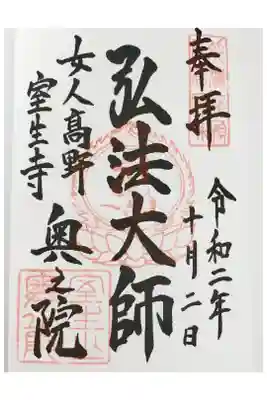 奉拝
令和二年
十月二日
弘法大師
奥之院
女人高野
室生寺